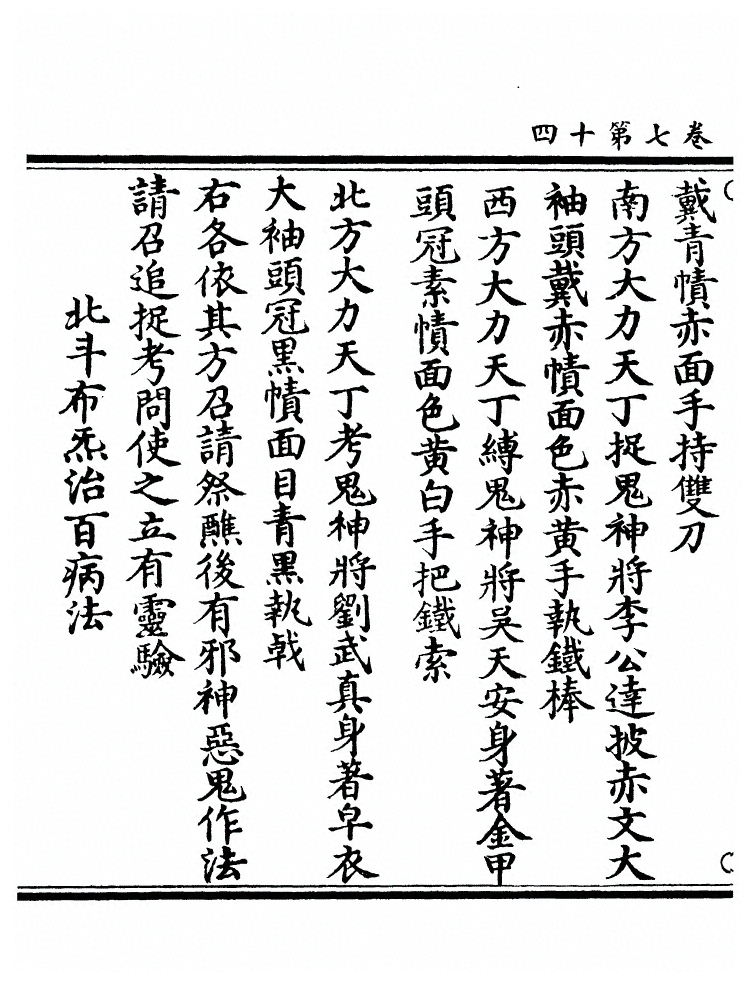 卷七第十四
戴青幘赤面手持雙刀
南方大力天丁捉鬼神將李公達披赤文大
袖頭戴赤幘面色赤黃手執鐵棒
西方大力天丁縛鬼神將吳天安身著金甲
頭冠素幘面色黃白手把鐵索
北方大力天丁考鬼神將劉武真身著皁衣
大袖頭冠黑幘面目青黑執戟
右各依其方召請祭醮後有邪神惡鬼作法
請召追捉考問使之立有靈驗
北斗布炁治百病法